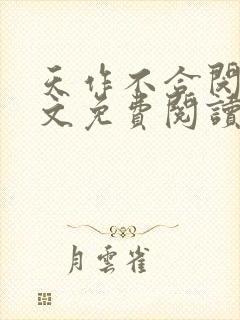 天作不合関
文免費閱讀
月雲雀